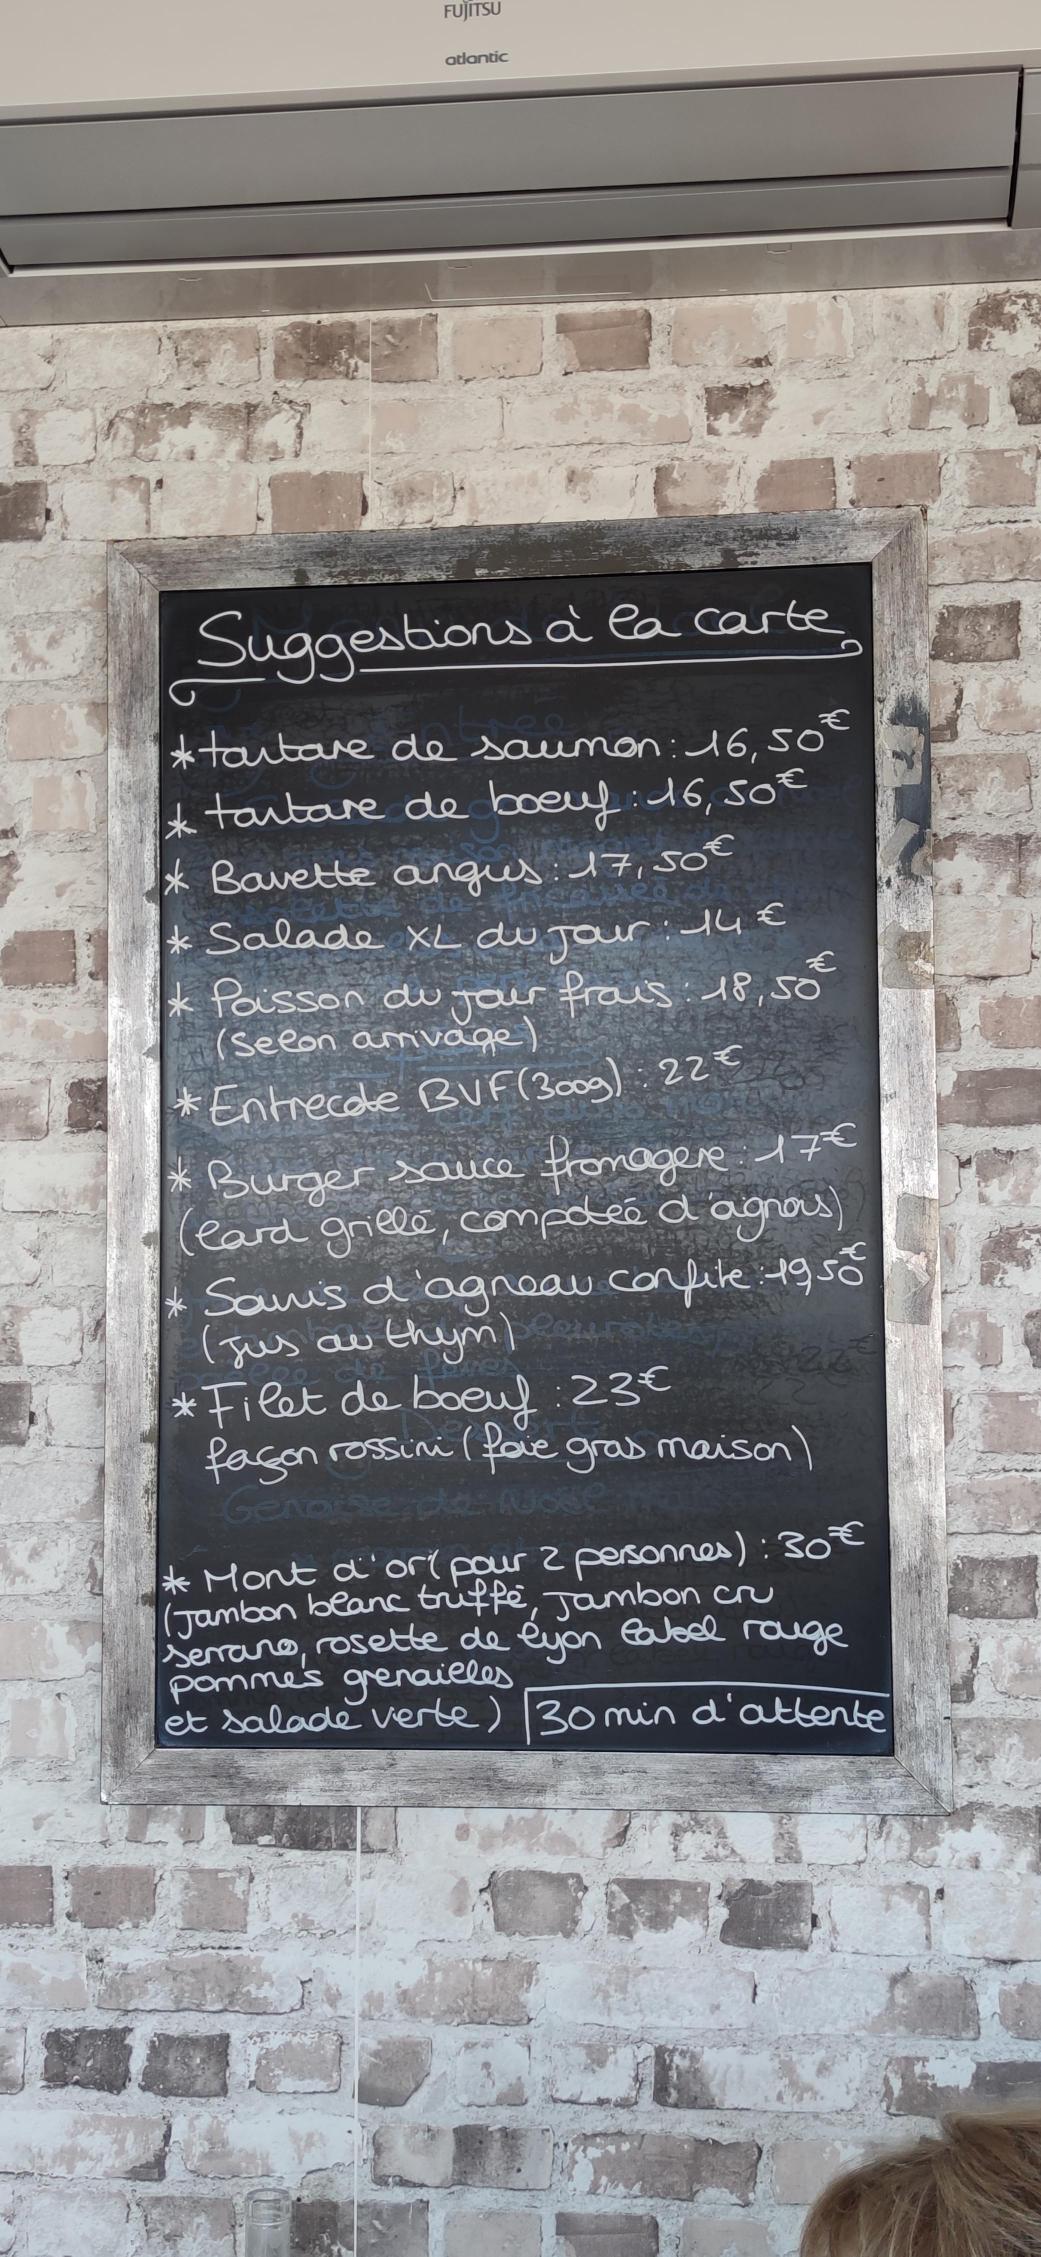 FUJITSU
atlantic
Suggestions à la carte
* tartare de saumon : 16,50€
* tartare de boeuf : 16,50€
* Bavette angus : 17,50€
* Salade XL du jour : 14€
* Poisson du jour frais : 18,50€
(selon arrivage)
* Entrecote BVF (300g) : 22€
* Burger sauce fromagere : 17€
(lard grillé, compotée d'oignons)
* Souris d'agneau confite : 19,50€
(jus au thym)
* Filet de boeuf : 23€
façon rossini (foie gras maison)
* Mont d'or (pour 2 personnes) : 30€
(jambon blanc truffé, jambon cru
serrano, rosette de lyon label rouge
pommes grenailles
et salade verte) 30 min d'attente